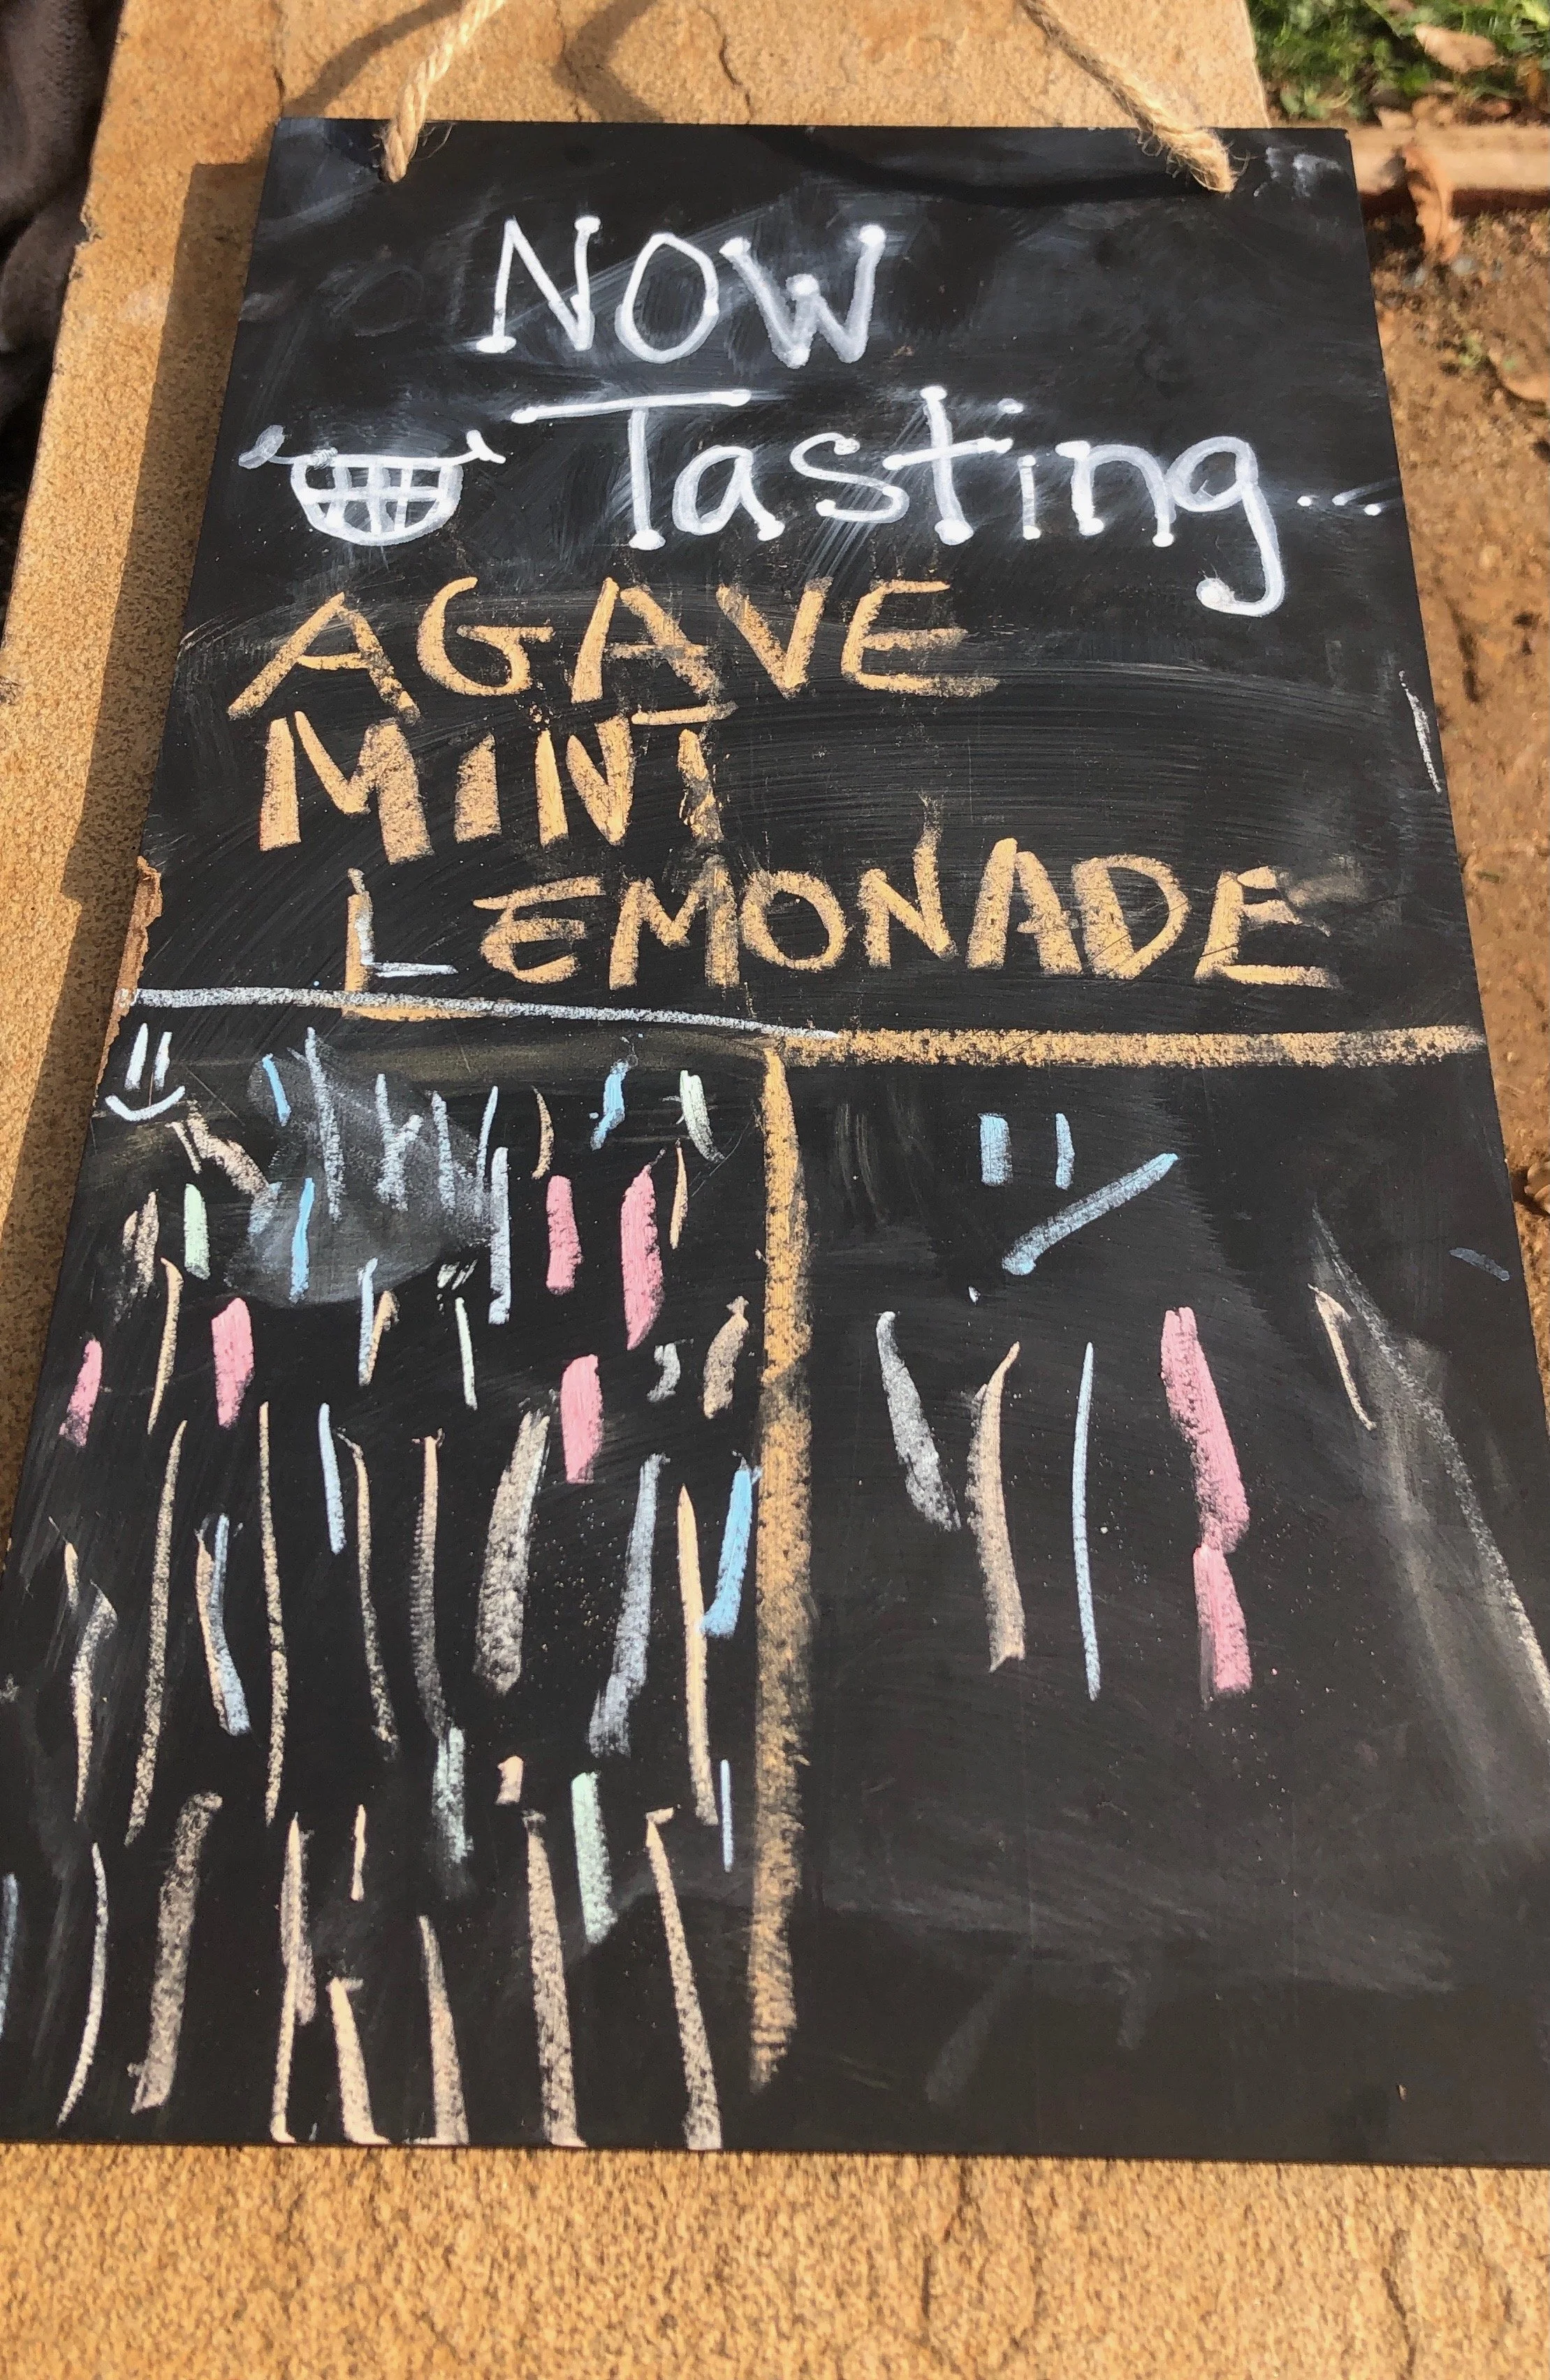 NOW
Tasting...
AGAVE
MINT
LEMONADE